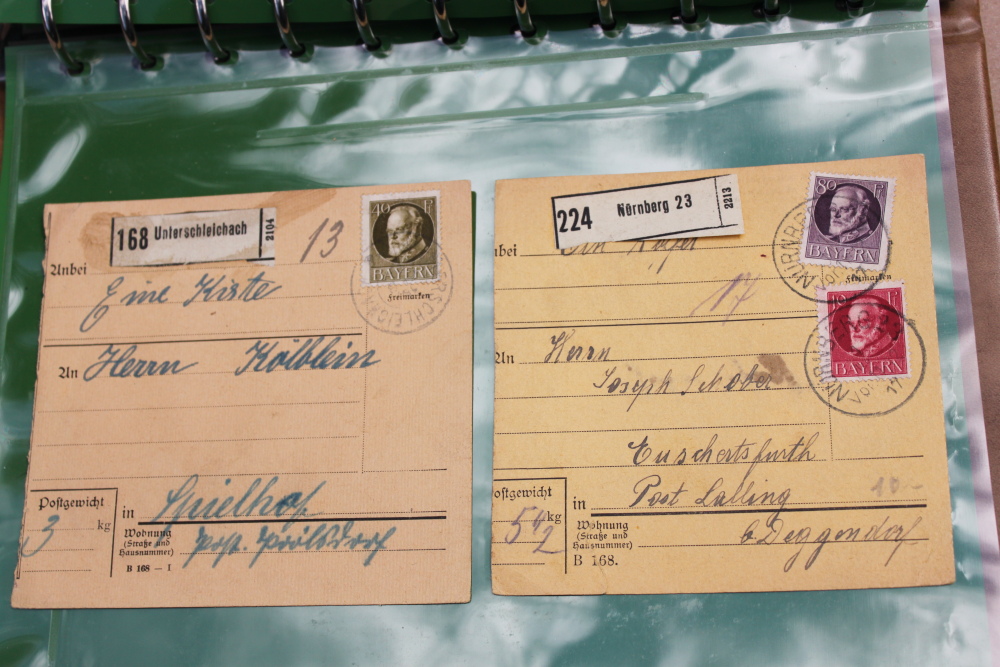 168 Unterschleichach 2104
13
40 Pf
BAYERN
Freimarken
Anbei
Eine Kiste
An Herrn Kölblein
Postgewicht
3 kg
in Spielhof
Wohnung
(Straße und
Hausnummer)
Post.
B 168 – I
224 Nürnberg 23 2213
80 Pf
BAYERN
Freimarken
nbei
17
10 Pf
BAYERN
NÜRNB
17
An Herrn
Joseph Schober
Euschertsfurth
ostgewicht
5 kg
in Post Lalling
10-
Wohnung
(Straße und
Hausnummer)
b Deggendorf
B 168.